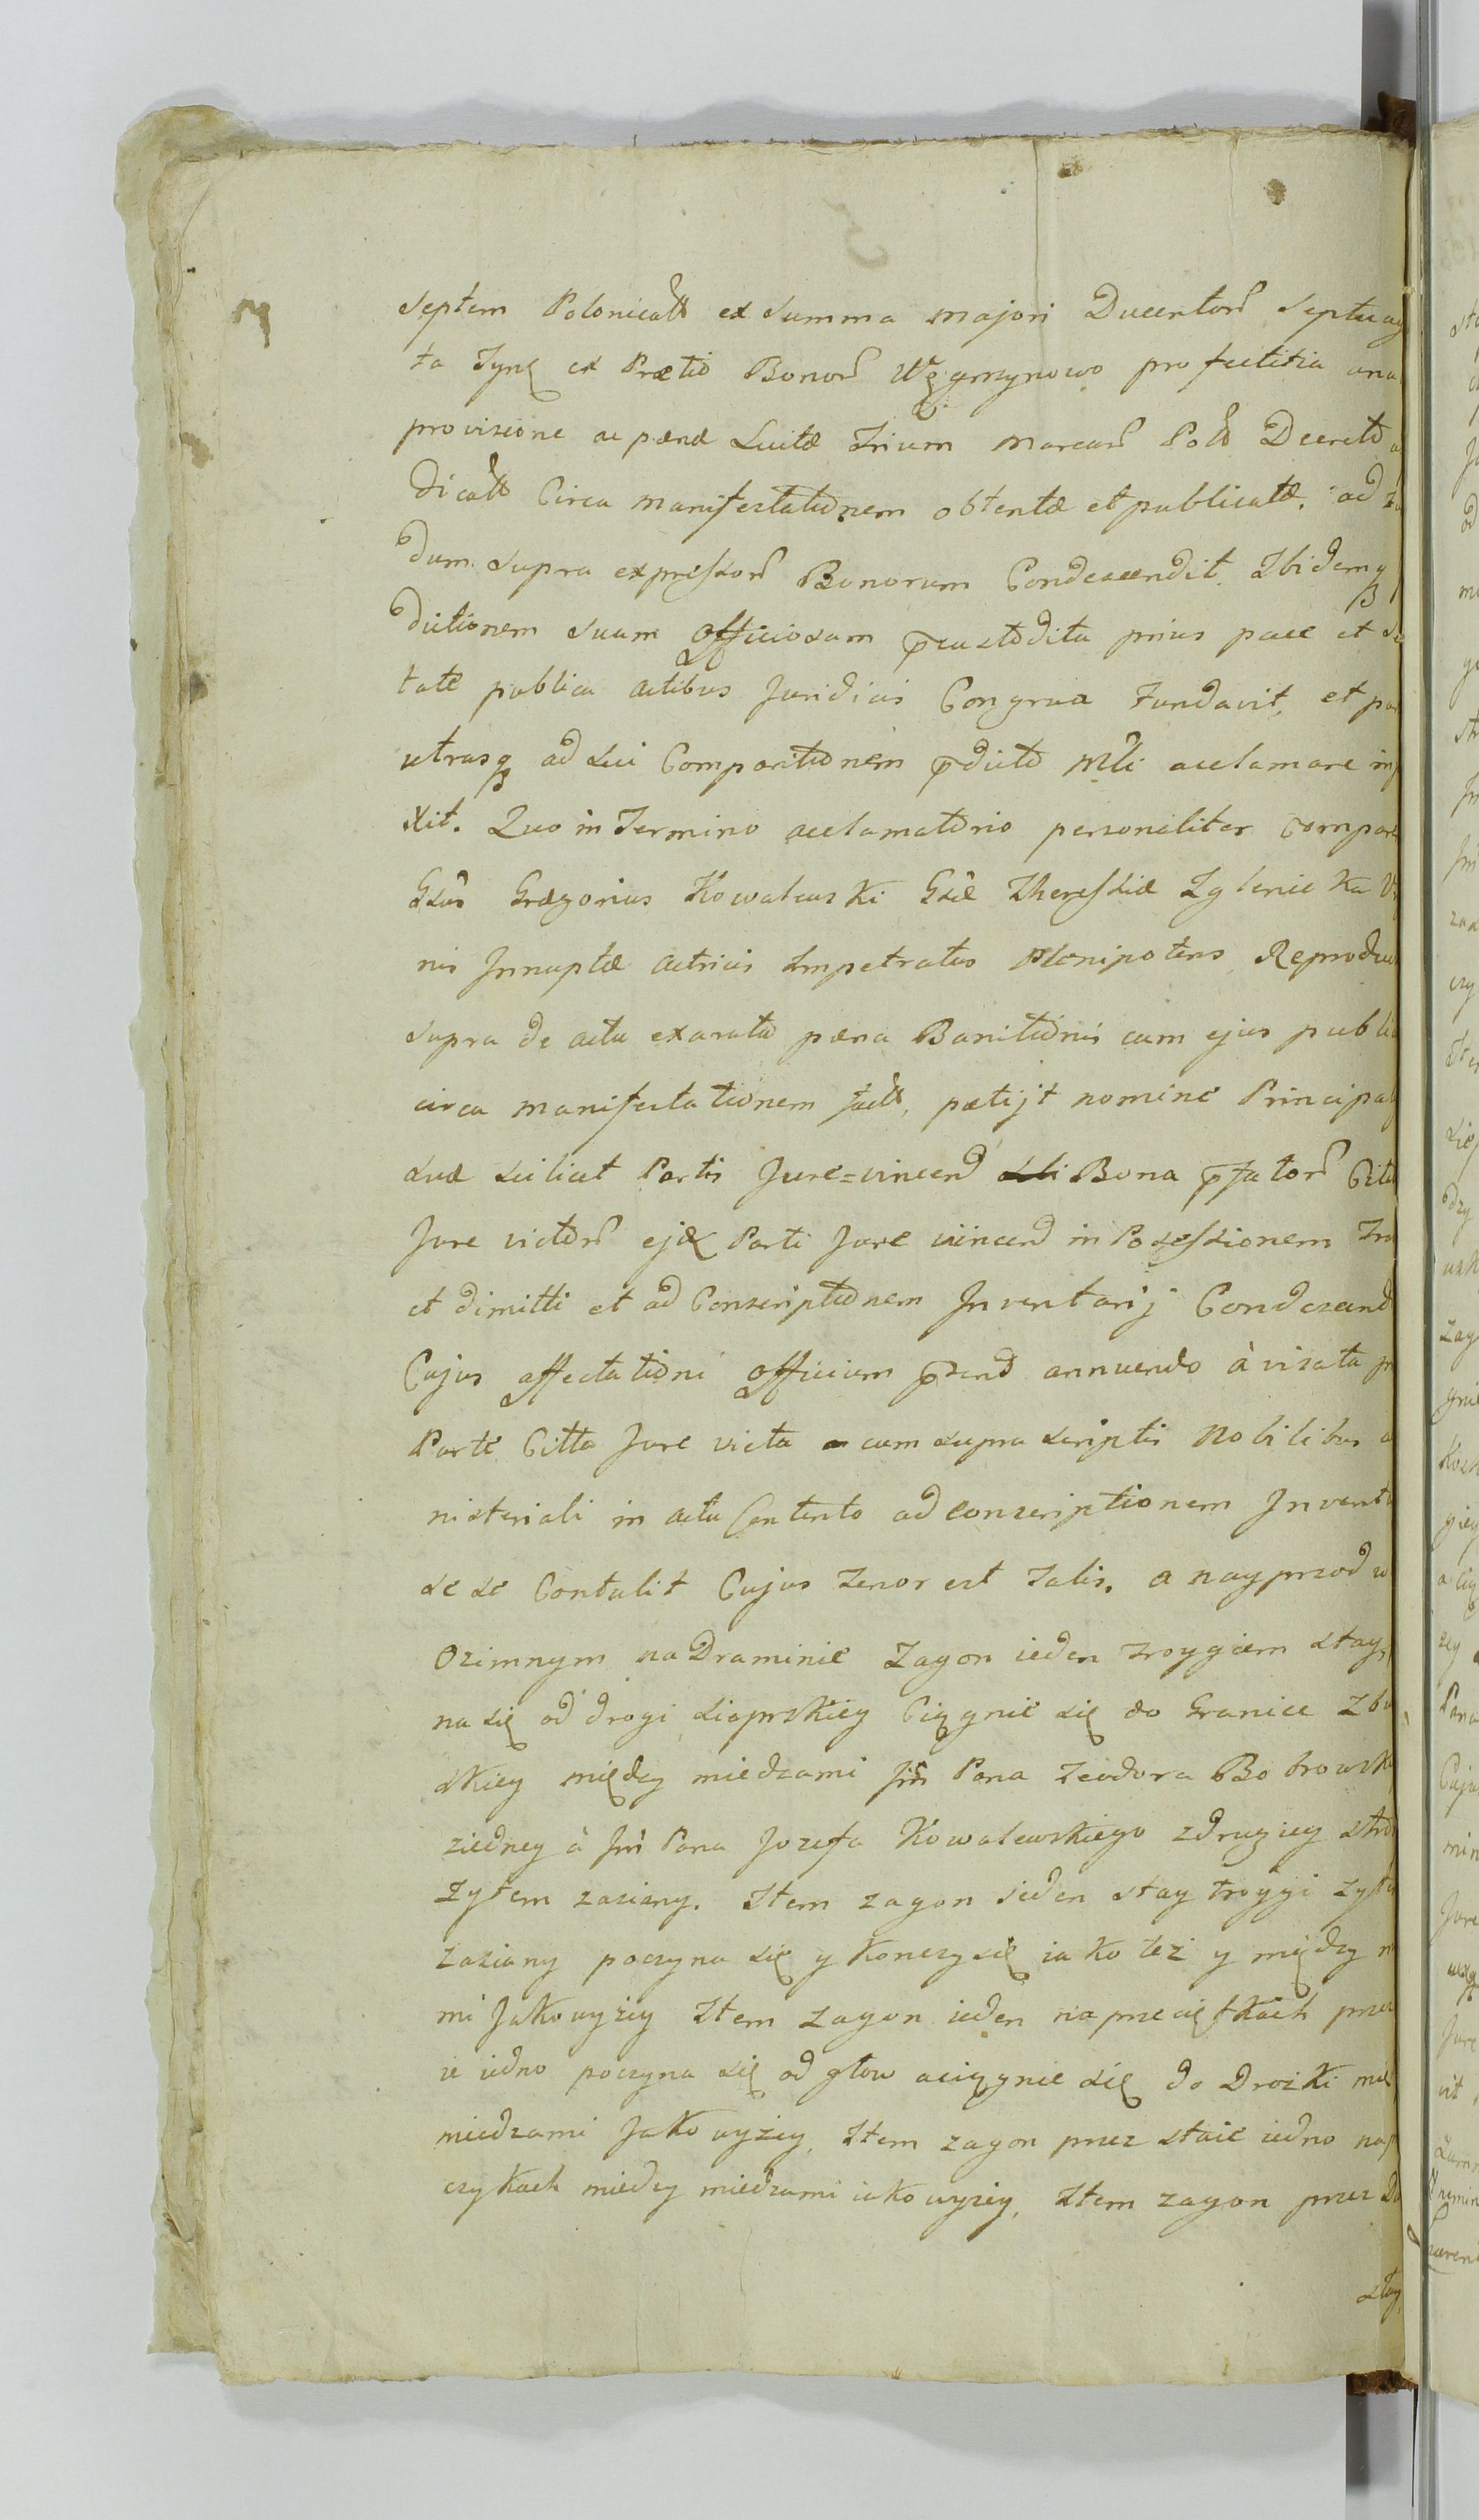 Septem Polonicall ex Summa majori Ducentor Septuag
ta Tynf ex Prætio Bonor Węgrzynowo profectitia una
provisione ac pænæ Luitæ Trium marcar Poll Decreto
dicall Circa manifestationem obtentæ et publicatæ. ad
dum supra expressor Bonorum Condescendit. Ibidemq
dictionem suam Officiosam pcustodita prius pace et Se
tate publica actibus Juridicis Congrua Fundavit, et par
utrasq ad sui Comparitionem pdicto Mli acclamare in
xit. Quo in Termino acclamatorio personaliter Compare
Gsus Gregorius Kowalewski Gsæ Theressiæ Zglenicka V
nis Innuptæ actricis Impetratus Plenipotens Reproduc
supra de actu exarata pæna Banitionis cum ejus publi
circa manifestationem fact, pætijt nomine Principal
suæ scilicet Partis Jure=vincend Bona pfator Cita
Jure victor ejd Parti Jure vincend in Possessionem Tra
et dimitti et ad Conscriptionem Inventarij Condescend
Cujus affectationi Officium psens annuendo à visata
Parte Citta Jure victa cum supra scriptis Nobilibus a
nisteriali in actu Contento ad conscriptionem Invent
se se Contulit Cujus Tenor est Talis. a nayprzod w
Ozimnym na Draminie Zagon ieden troygiem stay
na się od drogi Ciągnie się do Granice Zbo
skiey między miedzami Jm Pana Teodora Bobrowsk
ziedney à Jm Pana Jozefa Kowalewskiego zdrugiey stro
Zytem zasiany. Item zagon ieden stay troygi zyt
zasiany poczyna się y konczy się iako też y między m
mi Jako wyżey Item Zagon ieden na przez
ie iedno poczyna się od głow aciągnie się do Drożki mię
miedzami Jako wyżey, Item zagon przez staie iedno na
czykach miedzy miedzami iako wyżey, Item zagon przez
stay